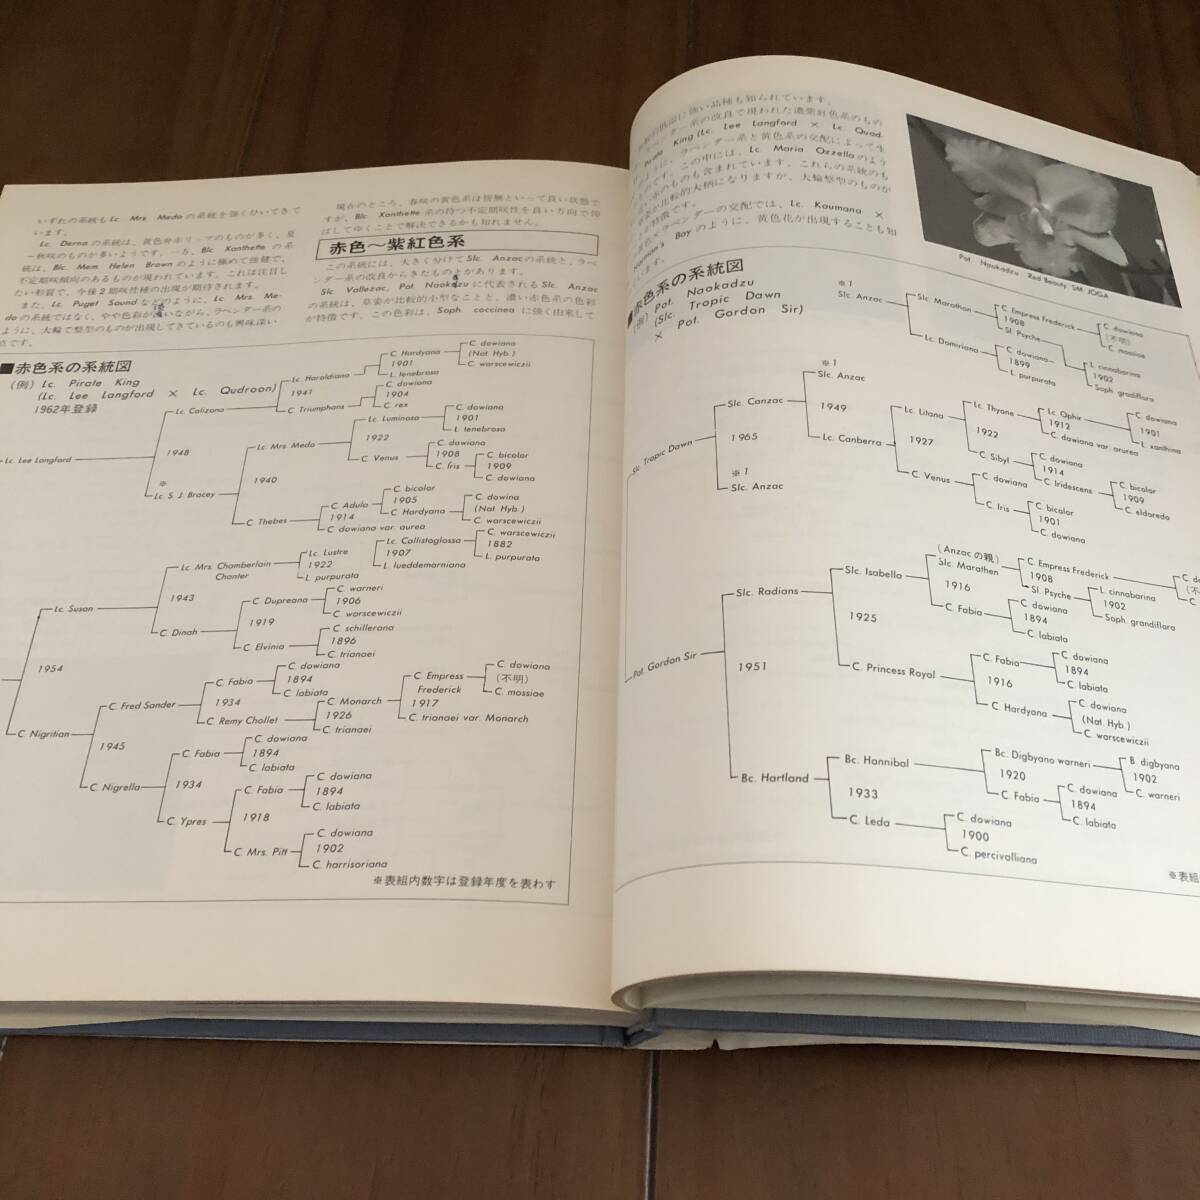 いずれの系統もLc. Mrs. Medoの系統を強くひいてきて
います。
Lc. Dernaの系統は、黄色弁赤リップのものが多く、夏
〜秋咲のものが多いようです。一方、Blc. Xanthetteの系
統は、Blc. Mem. Helen Brownのように極めて強健で、
不定期咲傾向のあるものが現われています。これは注目し
たい形質で、今後2期咲性種の出現が期待されます。
また、Lc. Puget Soundなどのように、Lc. Mrs. Me-
doの系統ではなく、やや色彩が濃いながら、ラベンダー系の
ように、大輪で整型のものが出現してきているのも興味深い
点です。
現在のところ、春咲の黄色系は皆無といって良い状態で
すが、Blc. Xanthette系の持つ不定期咲性を良い方向で伸
ばしてゆくことで解決できるかも知れません。
赤色〜紫紅色系
この系統には、大きく分けてSlc. Anzacの系統と、ラベ
ンダー系の改良からきたものとがあります。
Slc. Vallezac, Pot. Naokazuに代表されるSlc. Anzac
の系統は、草姿が比較的小型なことと、濃い赤色系の色彩
が特徴です。この色彩は、Soph. coccineaに強く由来して
■赤色系の系統図
(例) Lc. Pirate King
(Lc. Lee Langford × Lc. Qudroon)
1962年登録
Lc. Lee Langford
1948
Lc. Calizona
1941
Lc. Haroldiana
C. Hardyana
1901
L. tenebrosa
C. dowiana
(Nat. Hyb.)
C. warscewiczii
C. Triumphans
C. dowiana
1904
C. rex
※
Lc. S. J. Bracey
1940
Lc. Mrs. Medo
1922
Lc. Luminosa
C. dowiana
1901
L. tenebrosa
C. Venus
C. dowiana
1908
C. Iris
C. bicolor
1909
C. dowiana
C. Thebes
C. Adula
1914
C. dowiana var. aurea
C. bicolor
1905
C. Hardyana
C. dowina
(Nat. Hyb.)
C. warscewiczii
1954
Lc. Susan
1943
Lc. Mrs. Chamberlain
Chanter
Lc. Lustre
1922
L. purpurata
Lc. Callistoglossa
1907
L. lueddemarniana
C. warscewiczii
1882
L. purpurata
C. Dinah
1919
C. Dupreana
C. warneri
1906
C. warscewiczii
C. Elvinia
C. schillerana
1896
C. trianaei
C. Nigritian
1945
C. Fred Sander
1934
C. Fabia
C. dowiana
1894
C. labiata
C. Remy Chollet
C. Monarch
1926
C. trianaei
C. Empress
Frederick
1917
C. trianaei var. Monarch
C. dowiana
(不明)
C. mossiae
C. Nigrella
1934
C. Fabia
C. dowiana
1894
C. labiata
C. Ypres
1918
C. Fabia
C. dowiana
1894
C. labiata
C. Mrs. Pitt
C. dowiana
1902
C. harrisoriana
※表組内数字は登録年度を表わす
低温に強い品種も知られています。
ンダー系の改良で現われた濃紫紅色系のもの
Pirate King (Lc. Lee Langford × Lc. Quad-
ように、ラベンダー系と黄色系の交配によって生
のです。この中には、Lc. Maria Ozzellaのよう
系のものも含まれています。これらの系統のも
草姿が比較的大柄になりますが、大輪整型のものが
が特徴です。
色×ラベンダーの交配では、Lc. Koumana ×
Norman's Bayのように、黄色花が出現することも知
います。
Pot. Naokadzu Red Beauty, SM. JOGA
■赤色系の系統図
(例) Pot. Naokadzu
(Slc. Tropic Dawn
× Pot. Gordon Sir)
※1
Slc. Anzac
Slc. Marathon
C. Empress Frederick
1908
Sl. Psyche
C. dowiana
(不明)
C. mossiae
L. cinnabarina
1902
Soph. grandiflora
Lc. Dominiana
C. dowiana
1899
L. purpurata
Slc. Tropic Dawn
1965
Slc. Canzac
1949
※1
Slc. Anzac
Lc. Canberra
1927
Lc. Litana
1922
Lc. Thyone
Lc. Ophir
1912
C. dowiana var. arurea
C. dowiana
1901
L. xanthina
C. Sibyl
C. dowiana
1914
C. Iridescens
C. bicolor
1909
C. eldoredo
C. Venus
C. dowiana
C. Iris
C. bicolor
1901
C. dowiana
※1
Slc. Anzac
Pot. Gordon Sir
1951
Slc. Radians
1925
Slc. Isabella
1916
(Anzacの親)
Slc. Marathen
C. Empress Frederick
1908
Sl. Psyche
(不明
L. cinnabarina
1902
Soph. grandiflora
C. Fabia
C. dowiana
1894
C. labiata
C. Princess Royal
1916
C. Fabia
C. dowiana
1894
C. labiata
C. Hardyana
C. dowiana
(Nat. Hyb.)
C. warscewiczii
Bc. Hartland
1933
Bc. Hannibal
1920
Bc. Digbyano warneri
B. digbyana
1902
C. warneri
C. Fabia
C. dowiana
1894
C. labiata
C. Leda
C. dowiana
1900
C. percivalliana
※表組